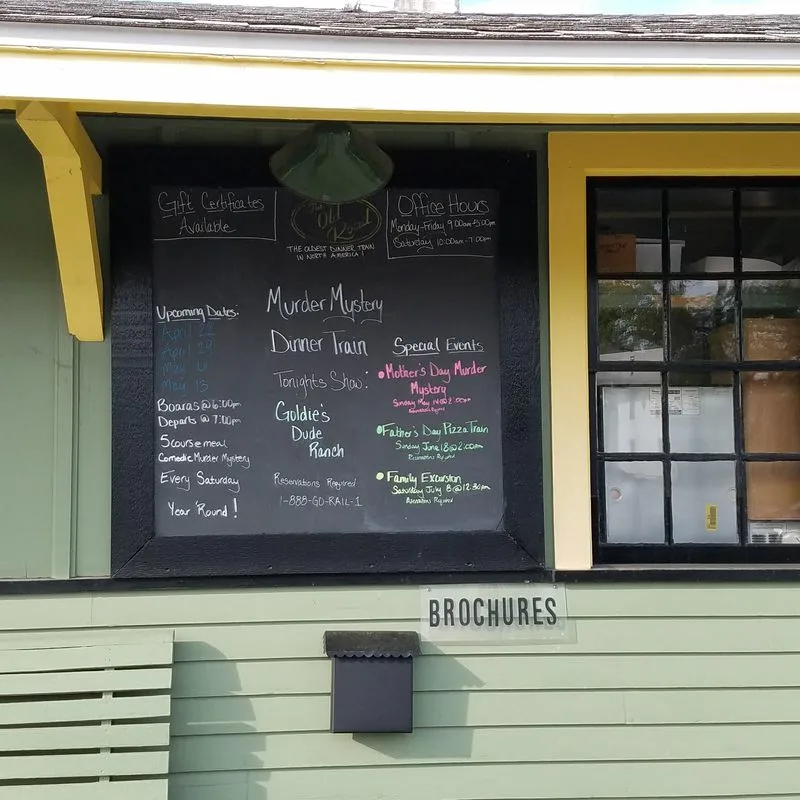 Gift Certificates
Available
The
Old
Road
THE OLDEST DINNER TRAIN
IN NORTH AMERICA!
Office Hours
Monday-Friday 9:00am-5:00pm
Saturday 10:00am-7:00pm
Upcoming Dates:
April 22
April 29
May 6
May 13
Boards @ 6:00pm
Departs @ 7:00pm
5 course meal
Comedic Murder Mystery
Every Saturday
Year 'Round!
Murder Mystery
Dinner Train
Tonights Show:
Goldie's
Dude
Ranch
Reservations Required
1-888-GO-RAIL-1
Special Events
• Mother's Day Murder
Mystery
Sunday May 14 @ 2:00pm
Reservations Required
• Father's Day Pizza Train
Sunday June 18 @ 2:00pm
Reservations Required
• Family Excursion
Saturday July 8 @ 12:30pm
Reservations Required
BROCHURES